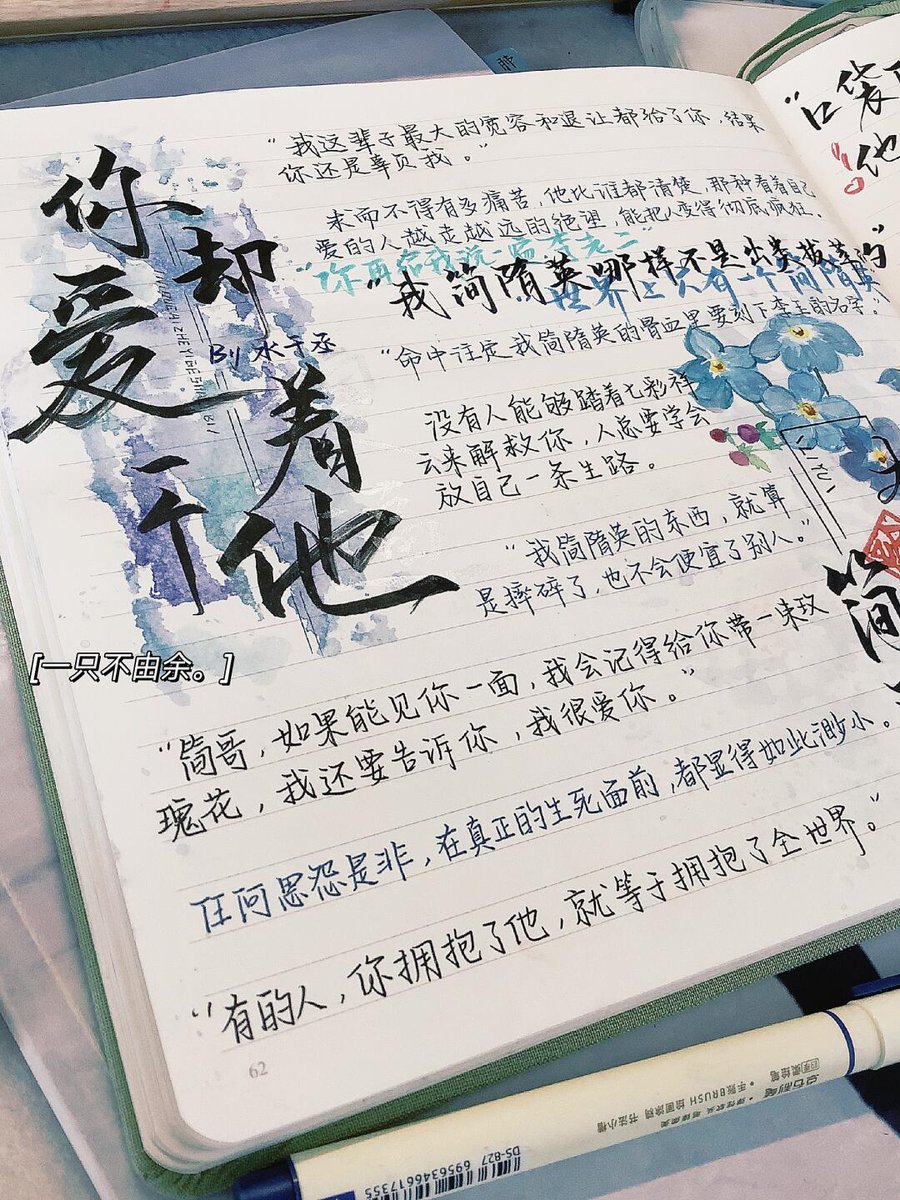 你
却
爱
着
一个
他
By 水千丞
"我这辈子最大的宽容和退让都给了你，结果
你还是辜负我。"
求而不得有多痛苦，他比谁都清楚，那种看着自己
爱的人越走越远的绝望，能把人变得彻底疯狂。
"你再给我说一遍李老二"
"我简隋英哪样不是出类拔萃的"
"世界上只有一个简隋英
"命中注定我简隋英的骨血里要刻下李玉的名字。"
没有人能够踏着七彩祥
云来解救你，人总要学会
放自己一条生路。
"我简隋英的东西，就算
是摔碎了，也不会便宜了别人。"
[一只不由余。]
"简哥，如果能见你一面，我会记得给你带一束玫
瑰花，我还要告诉你，我很爱你。"
任何恩怨是非，在真正的生死面前，都显得如此渺小。
"有的人，你拥抱了他，就等于拥抱了全世界。"
62
"口袋
他
简
手账BRUSH 绘图涂鸦 书法小楷
DS-827 6956346617355